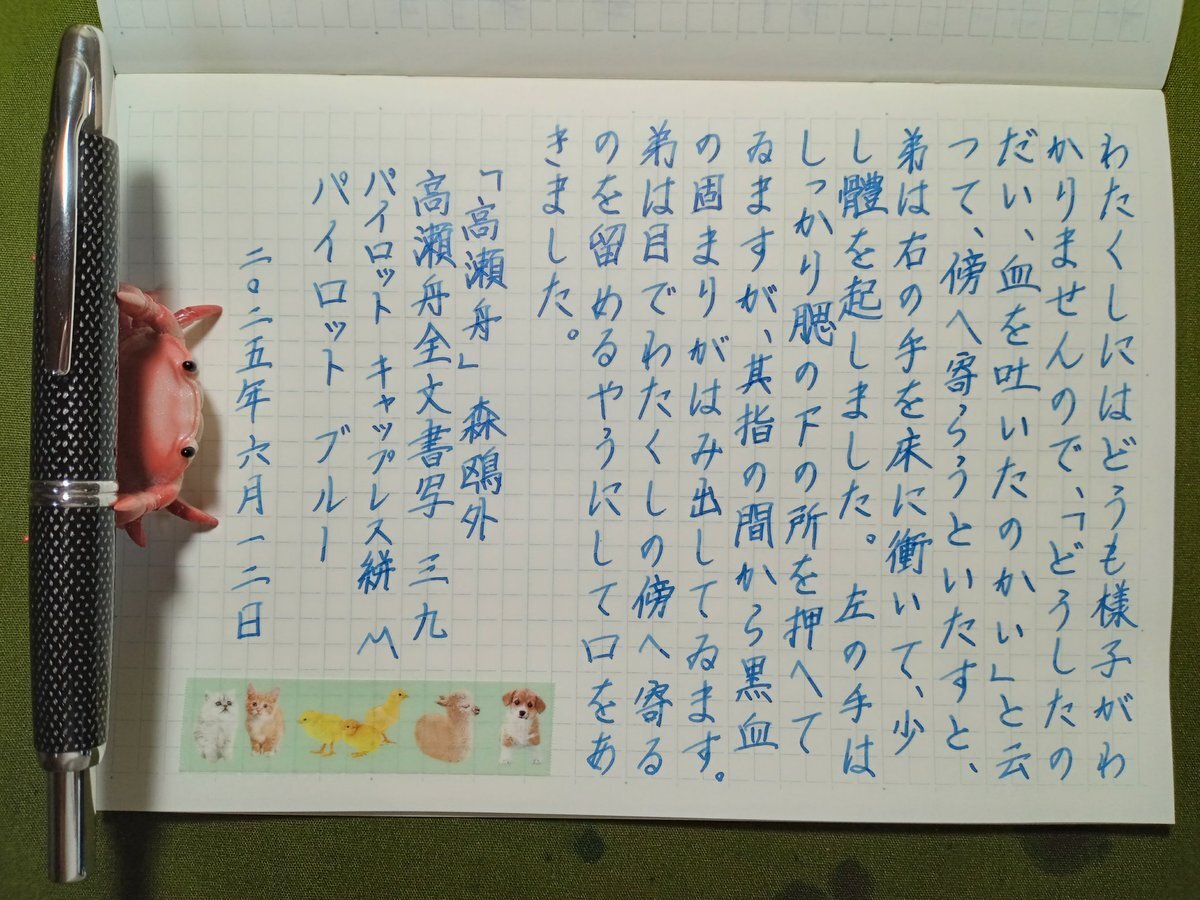 わたくしにはどうも様子がわ
かりませんので、「どうしたの
だい、血を吐いたのかい」と云
つて、傍へ寄らうといたすと、
弟は右の手を床に衝いて、少
し體を起しました。左の手は
しっかり腮の下の所を押へて
ゐますが、其指の間から黒血
の固まりがはみ出してゐます。
弟は目でわたくしの傍へ寄る
のを留めるやうにして口をあ
きました。
「高瀬舟」 森鴎外
高瀬舟全文書写 三九
パイロット キャップレス絣 M
パイロット ブルー
二〇二五年六月一二日